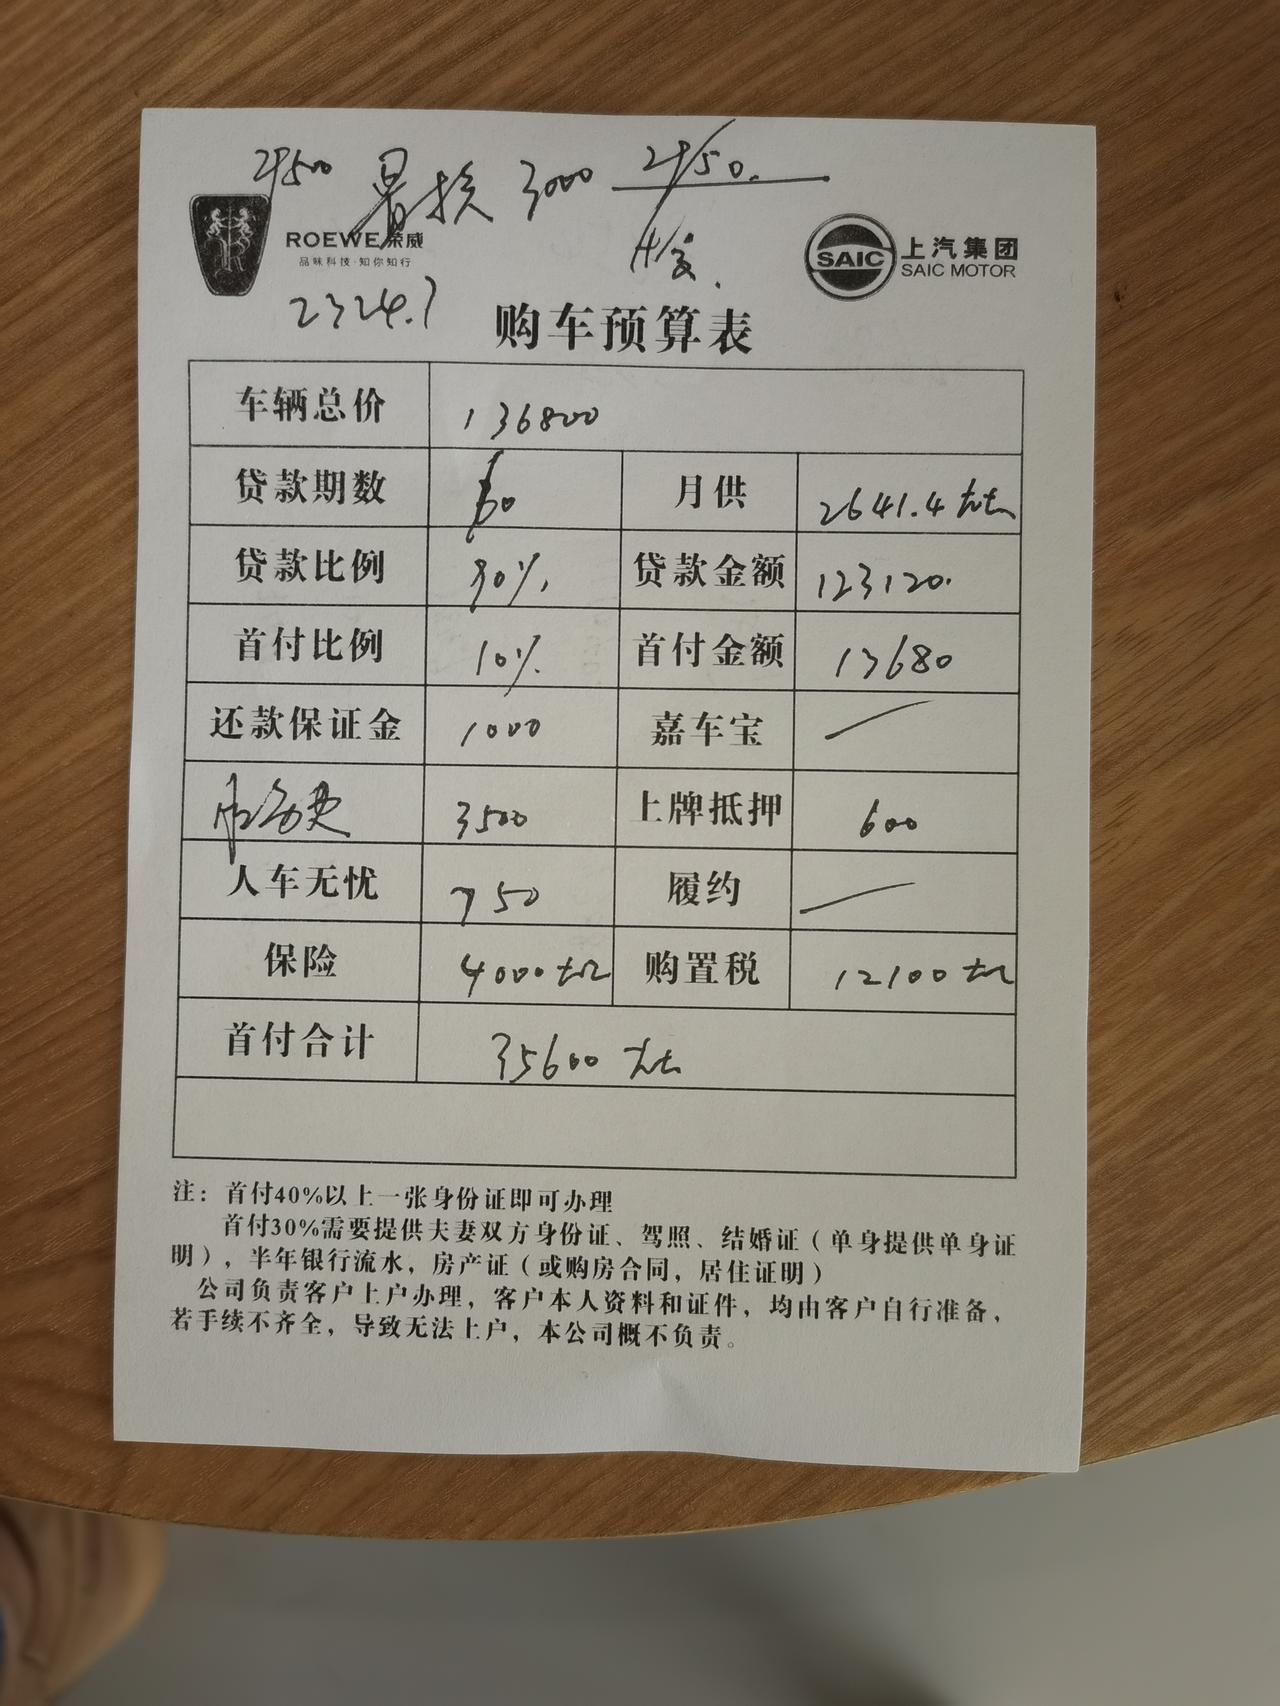 置换 3000
ROEWE 荣威
品味科技·知你知行
SAIC 上汽集团
SAIC MOTOR
2324.7
购车预算表
车辆总价 136800
贷款期数 60 月供 2641.4 左右
贷款比例 90% 贷款金额 123120.
首付比例 10% 首付金额 13680
还款保证金 1000 嘉车宝 /
服务费 3500 上牌抵押 600
人车无忧 750 履约 /
保险 4000左右 购置税 12100左右
首付合计 35600 左右
注：首付40%以上一张身份证即可办理
首付30%需要提供夫妻双方身份证、驾照、结婚证（单身提供单身证
明），半年银行流水，房产证（或购房合同，居住证明）
公司负责客户上户办理，客户本人资料和证件，均由客户自行准备，
若手续不齐全，导致无法上户，本公司概不负责。